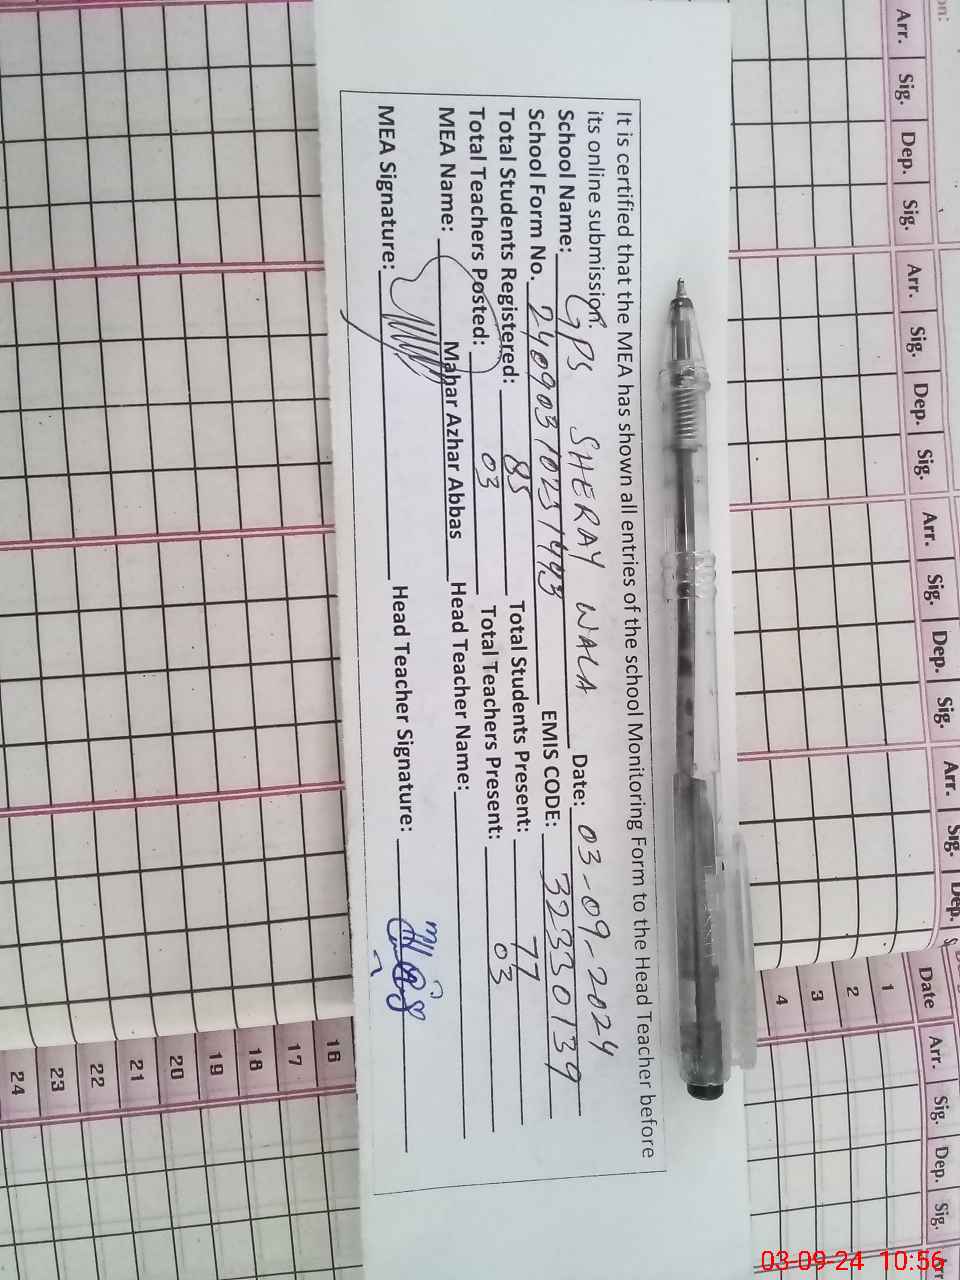 It is certified that the MEA has shown all entries of the school Monitoring Form to the Head Teacher before
its online submission.
School Name: GPS SHERAY WALA Date: 03-09-2024
School Form No. 24090310251993 EMIS CODE: 32330139
Total Students Registered: 85 Total Students Present: 77
Total Teachers Posted: 03 Total Teachers Present: 03
MEA Name: Mahar Azhar Abbas Head Teacher Name:
MEA Signature: Head Teacher Signature:
Arr. Sig. Dep. Sig. Arr. Sig. Dep. Sig. Arr. Sig. Dep. Sig. Arr. Sig. Dep.
Date Arr. Sig. Dep. Sig.
1
2
3
4
16
17
18
19
20
21
22
23
24
03-09-24 10:56